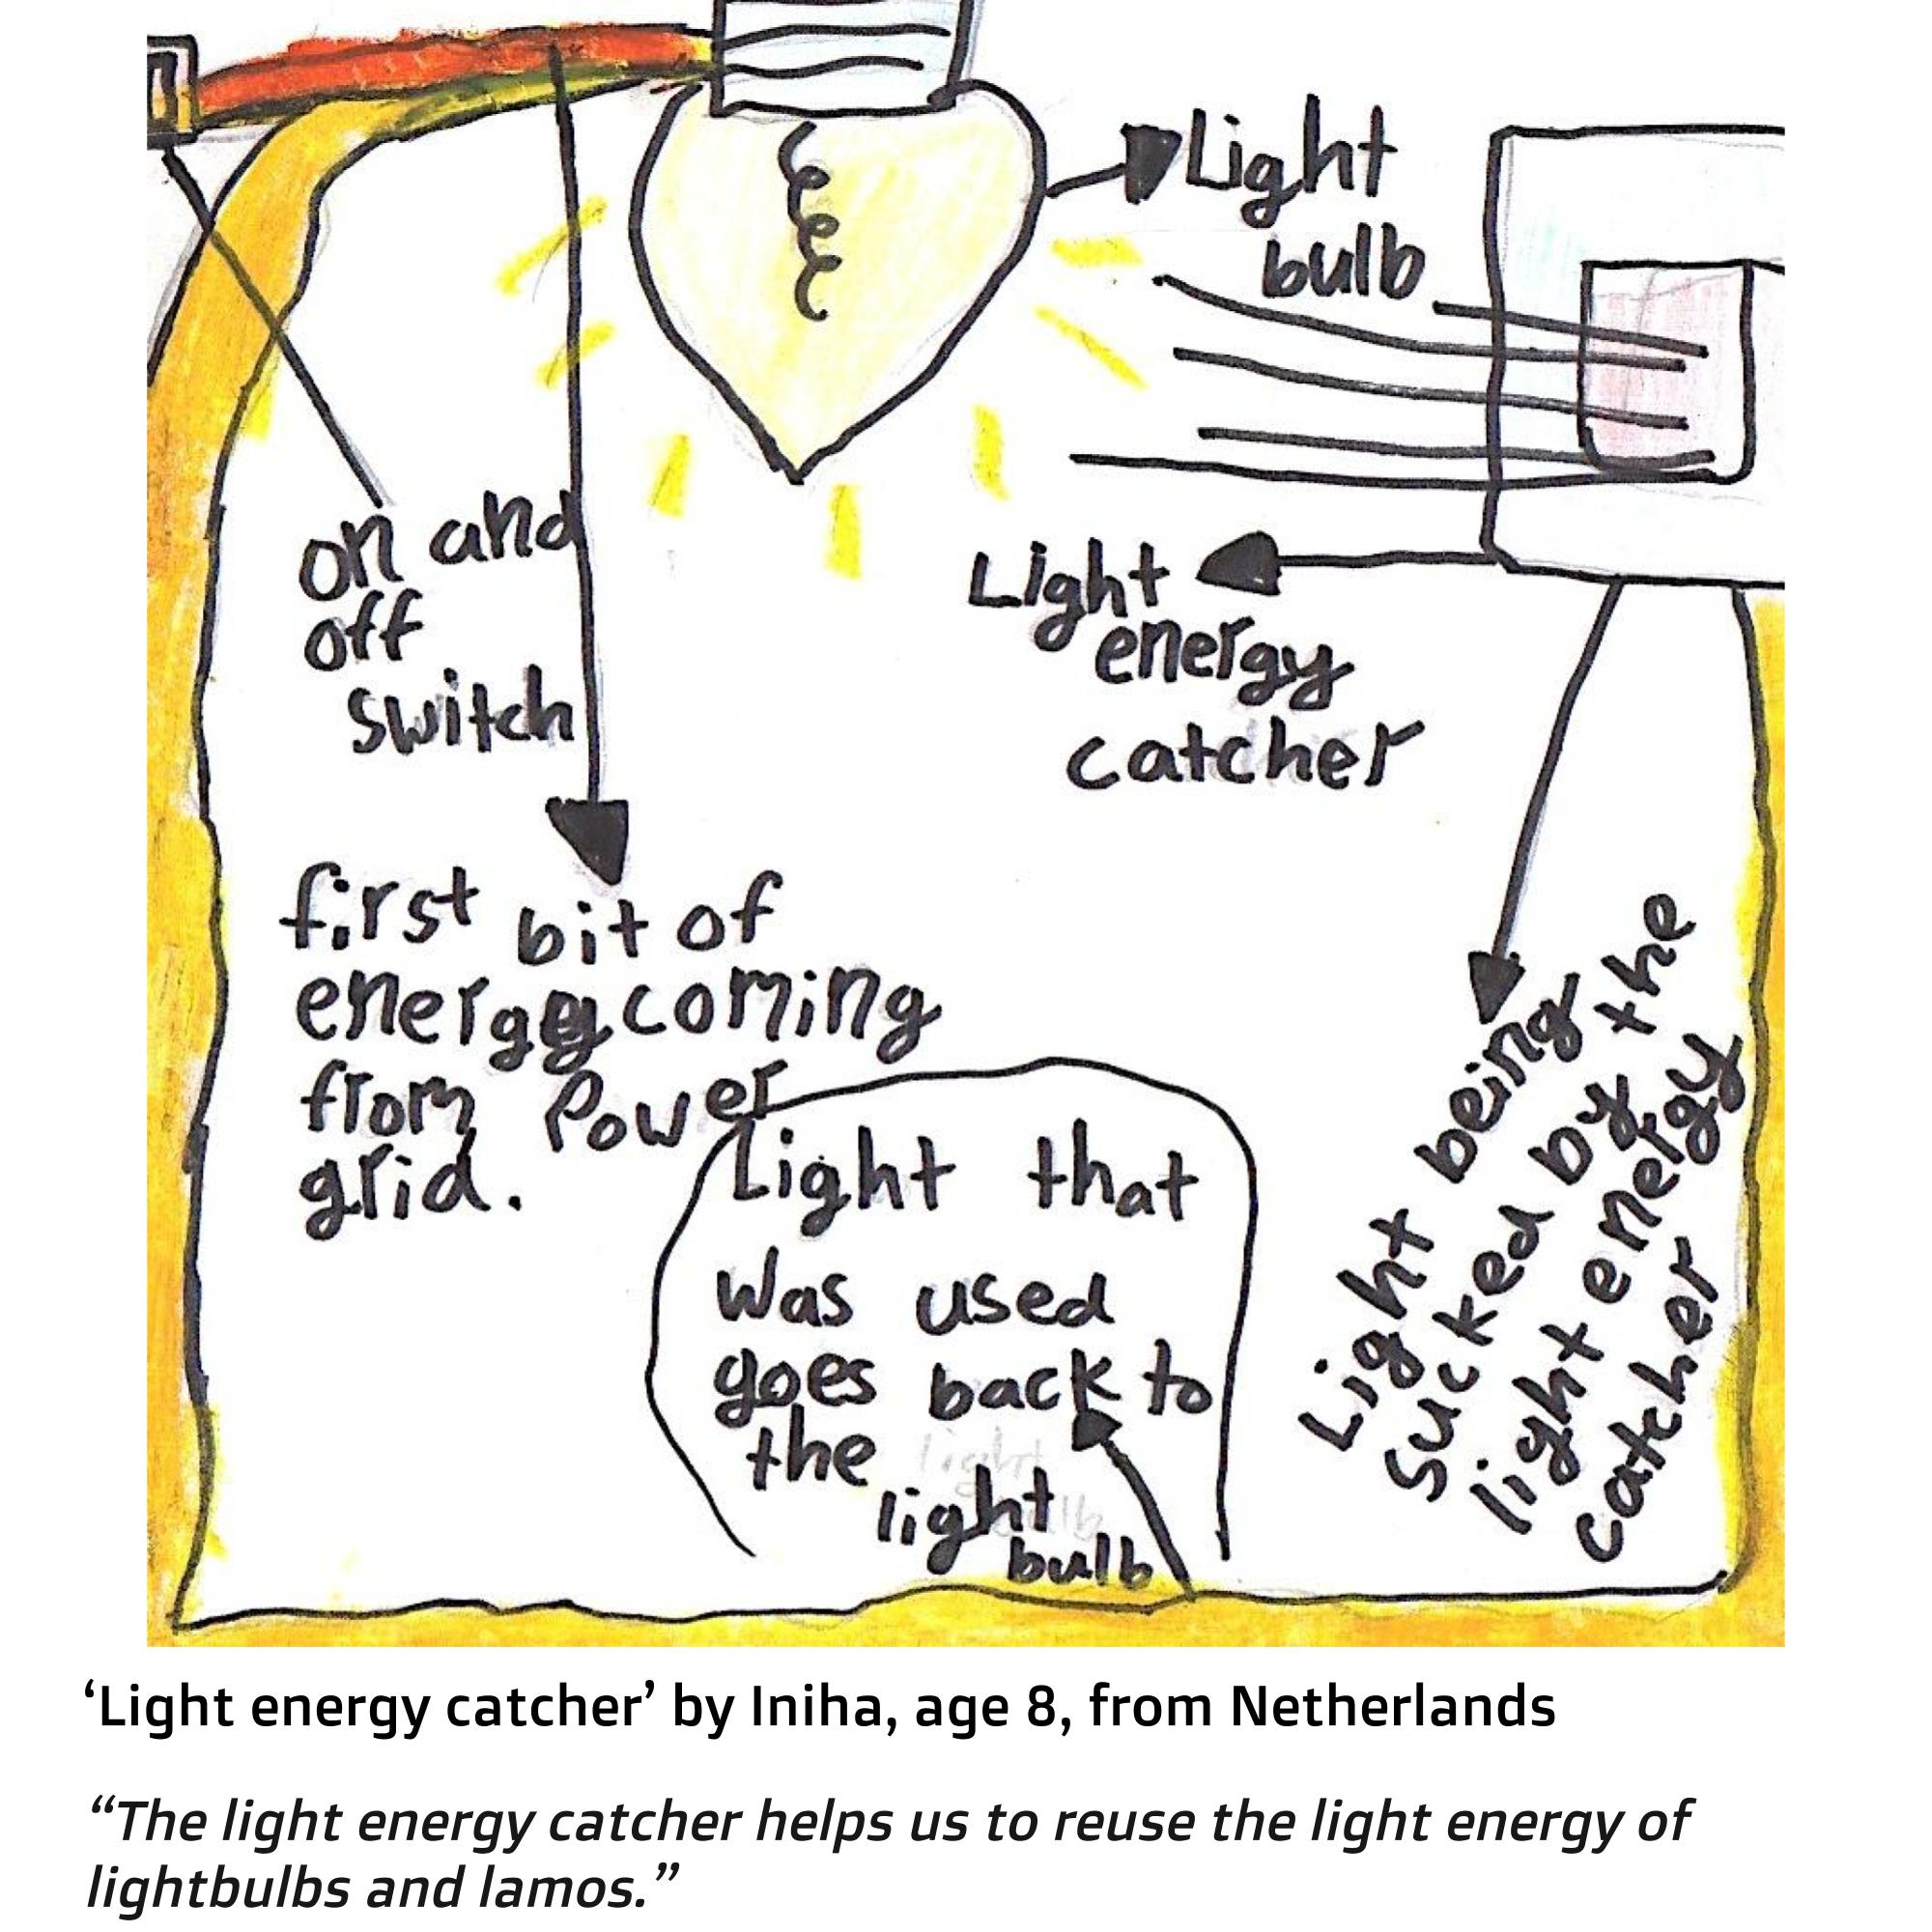 Light
bulb
on and
off
switch
Light
energy
catcher
first bit of
energy coming
from Power
grid.
Light that
was used
goes back to
the
light
bulb
Light being
sucked by the
light energy
catcher
‘Light energy catcher’ by Iniha, age 8, from Netherlands
“The light energy catcher helps us to reuse the light energy of
lightbulbs and lamos.”